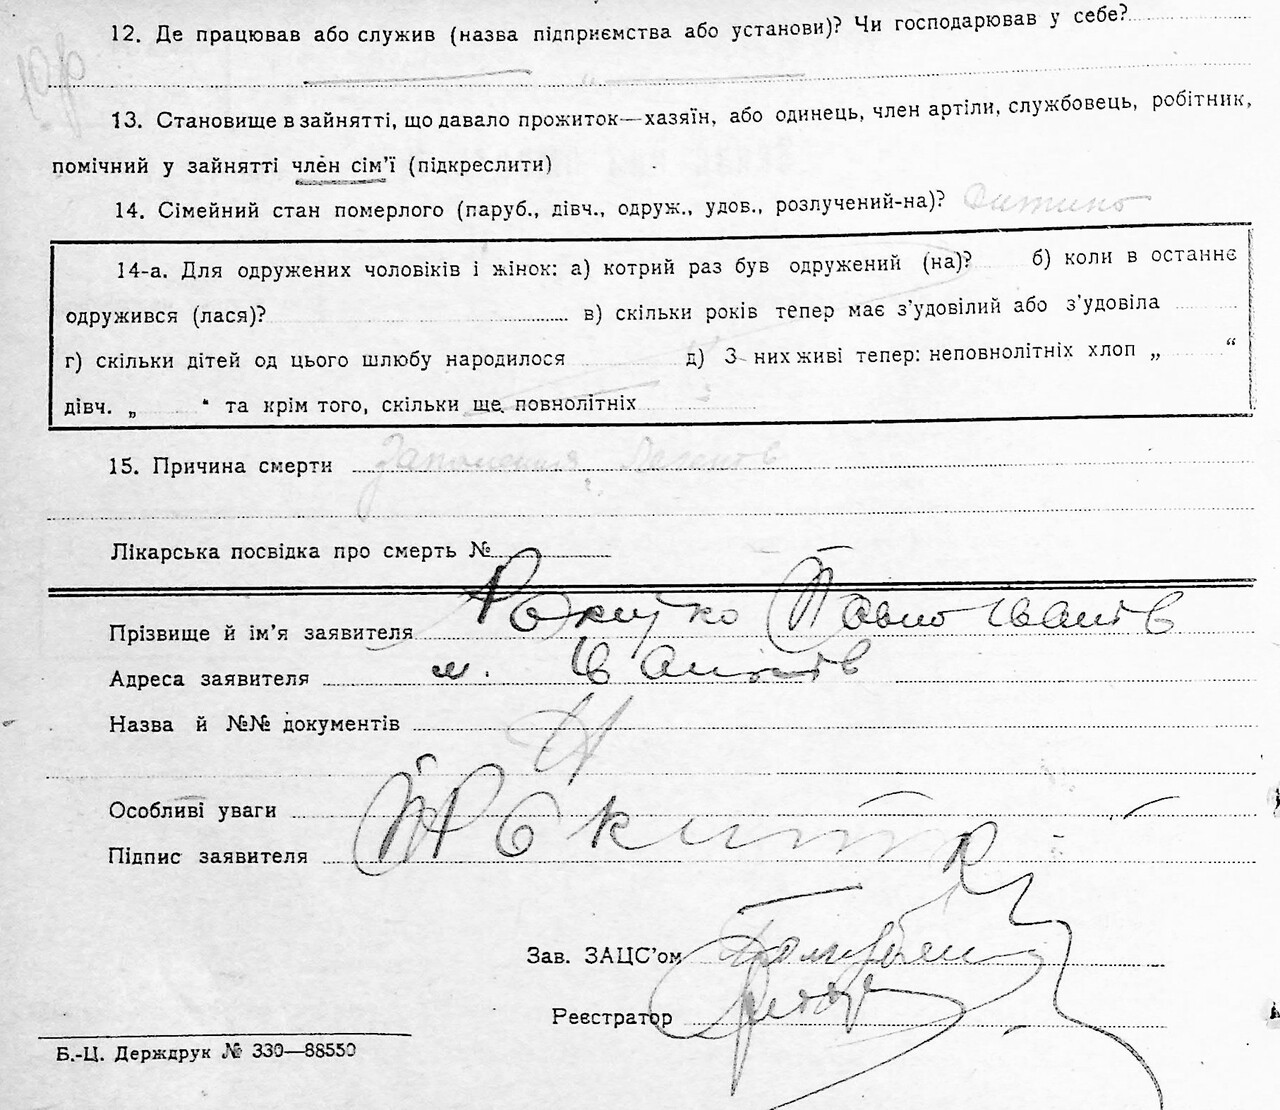 12. Де працював або служив (назва підприємства або установи)? Чи господарював у себе?
13. Становище в зайнятті, що давало прожиток—хазяїн, або одинець, член артіли, службовець, робітник,
помічний у зайнятті член сім'ї (підкреслити)
14. Сімейний стан померлого (паруб., дівч., одруж., удов., розлучений-на)? Дитина
14-а. Для одружених чоловіків і жінок: а) котрий раз був одружений (на)? б) коли в останнє
одружився (лася)? в) скільки років тепер має з'удовілий або з'удовіла
г) скільки дітей од цього шлюбу народилося д) З них живі тепер: неповнолітніх хлоп „ “
дівч. „ “ та крім того, скільки ще повнолітніх
15. Причина смерти Запалення легенів
Лікарська посвідка про смерть №
Прізвище й ім'я заявителя Павло Іванів
Адреса заявителя м. Іванків
Назва й №№ документів
Особливі уваги
Підпис заявителя
Зав. ЗАЦС'ом
Реєстратор
Б.-Ц. Держдрук № 330—88550